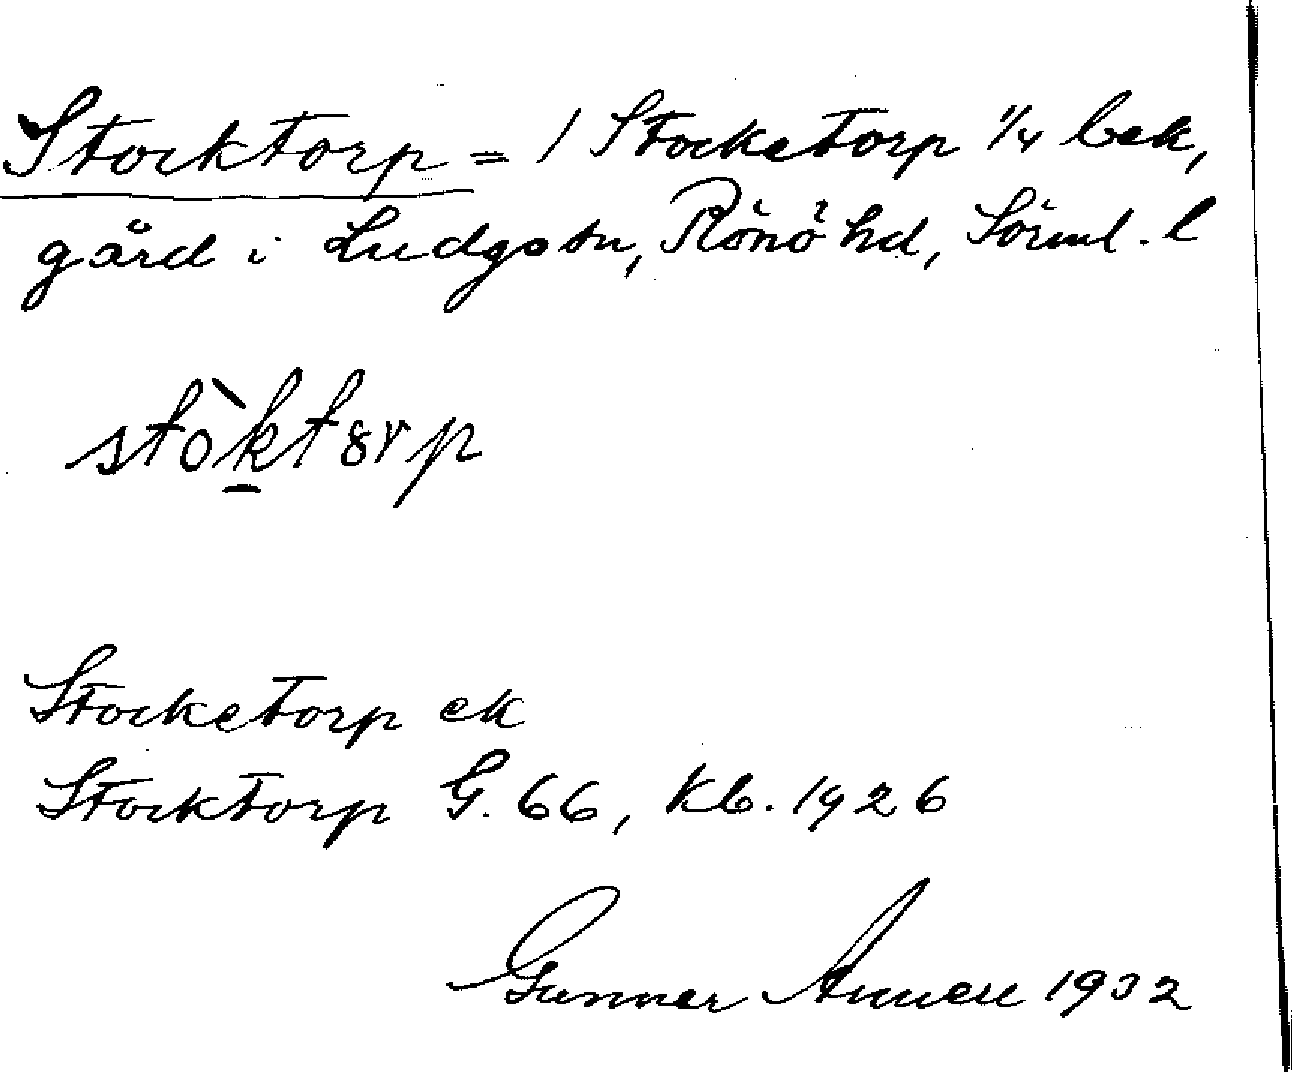 Stocktorp = 1 Stocketorp 1/4 bek,
gård i Ludgo sn, Rönö hd, Sörml. l
stòktørp
Stocketorp ek
Stocktorp G. 66, kb. 1926
Gunnar 1932